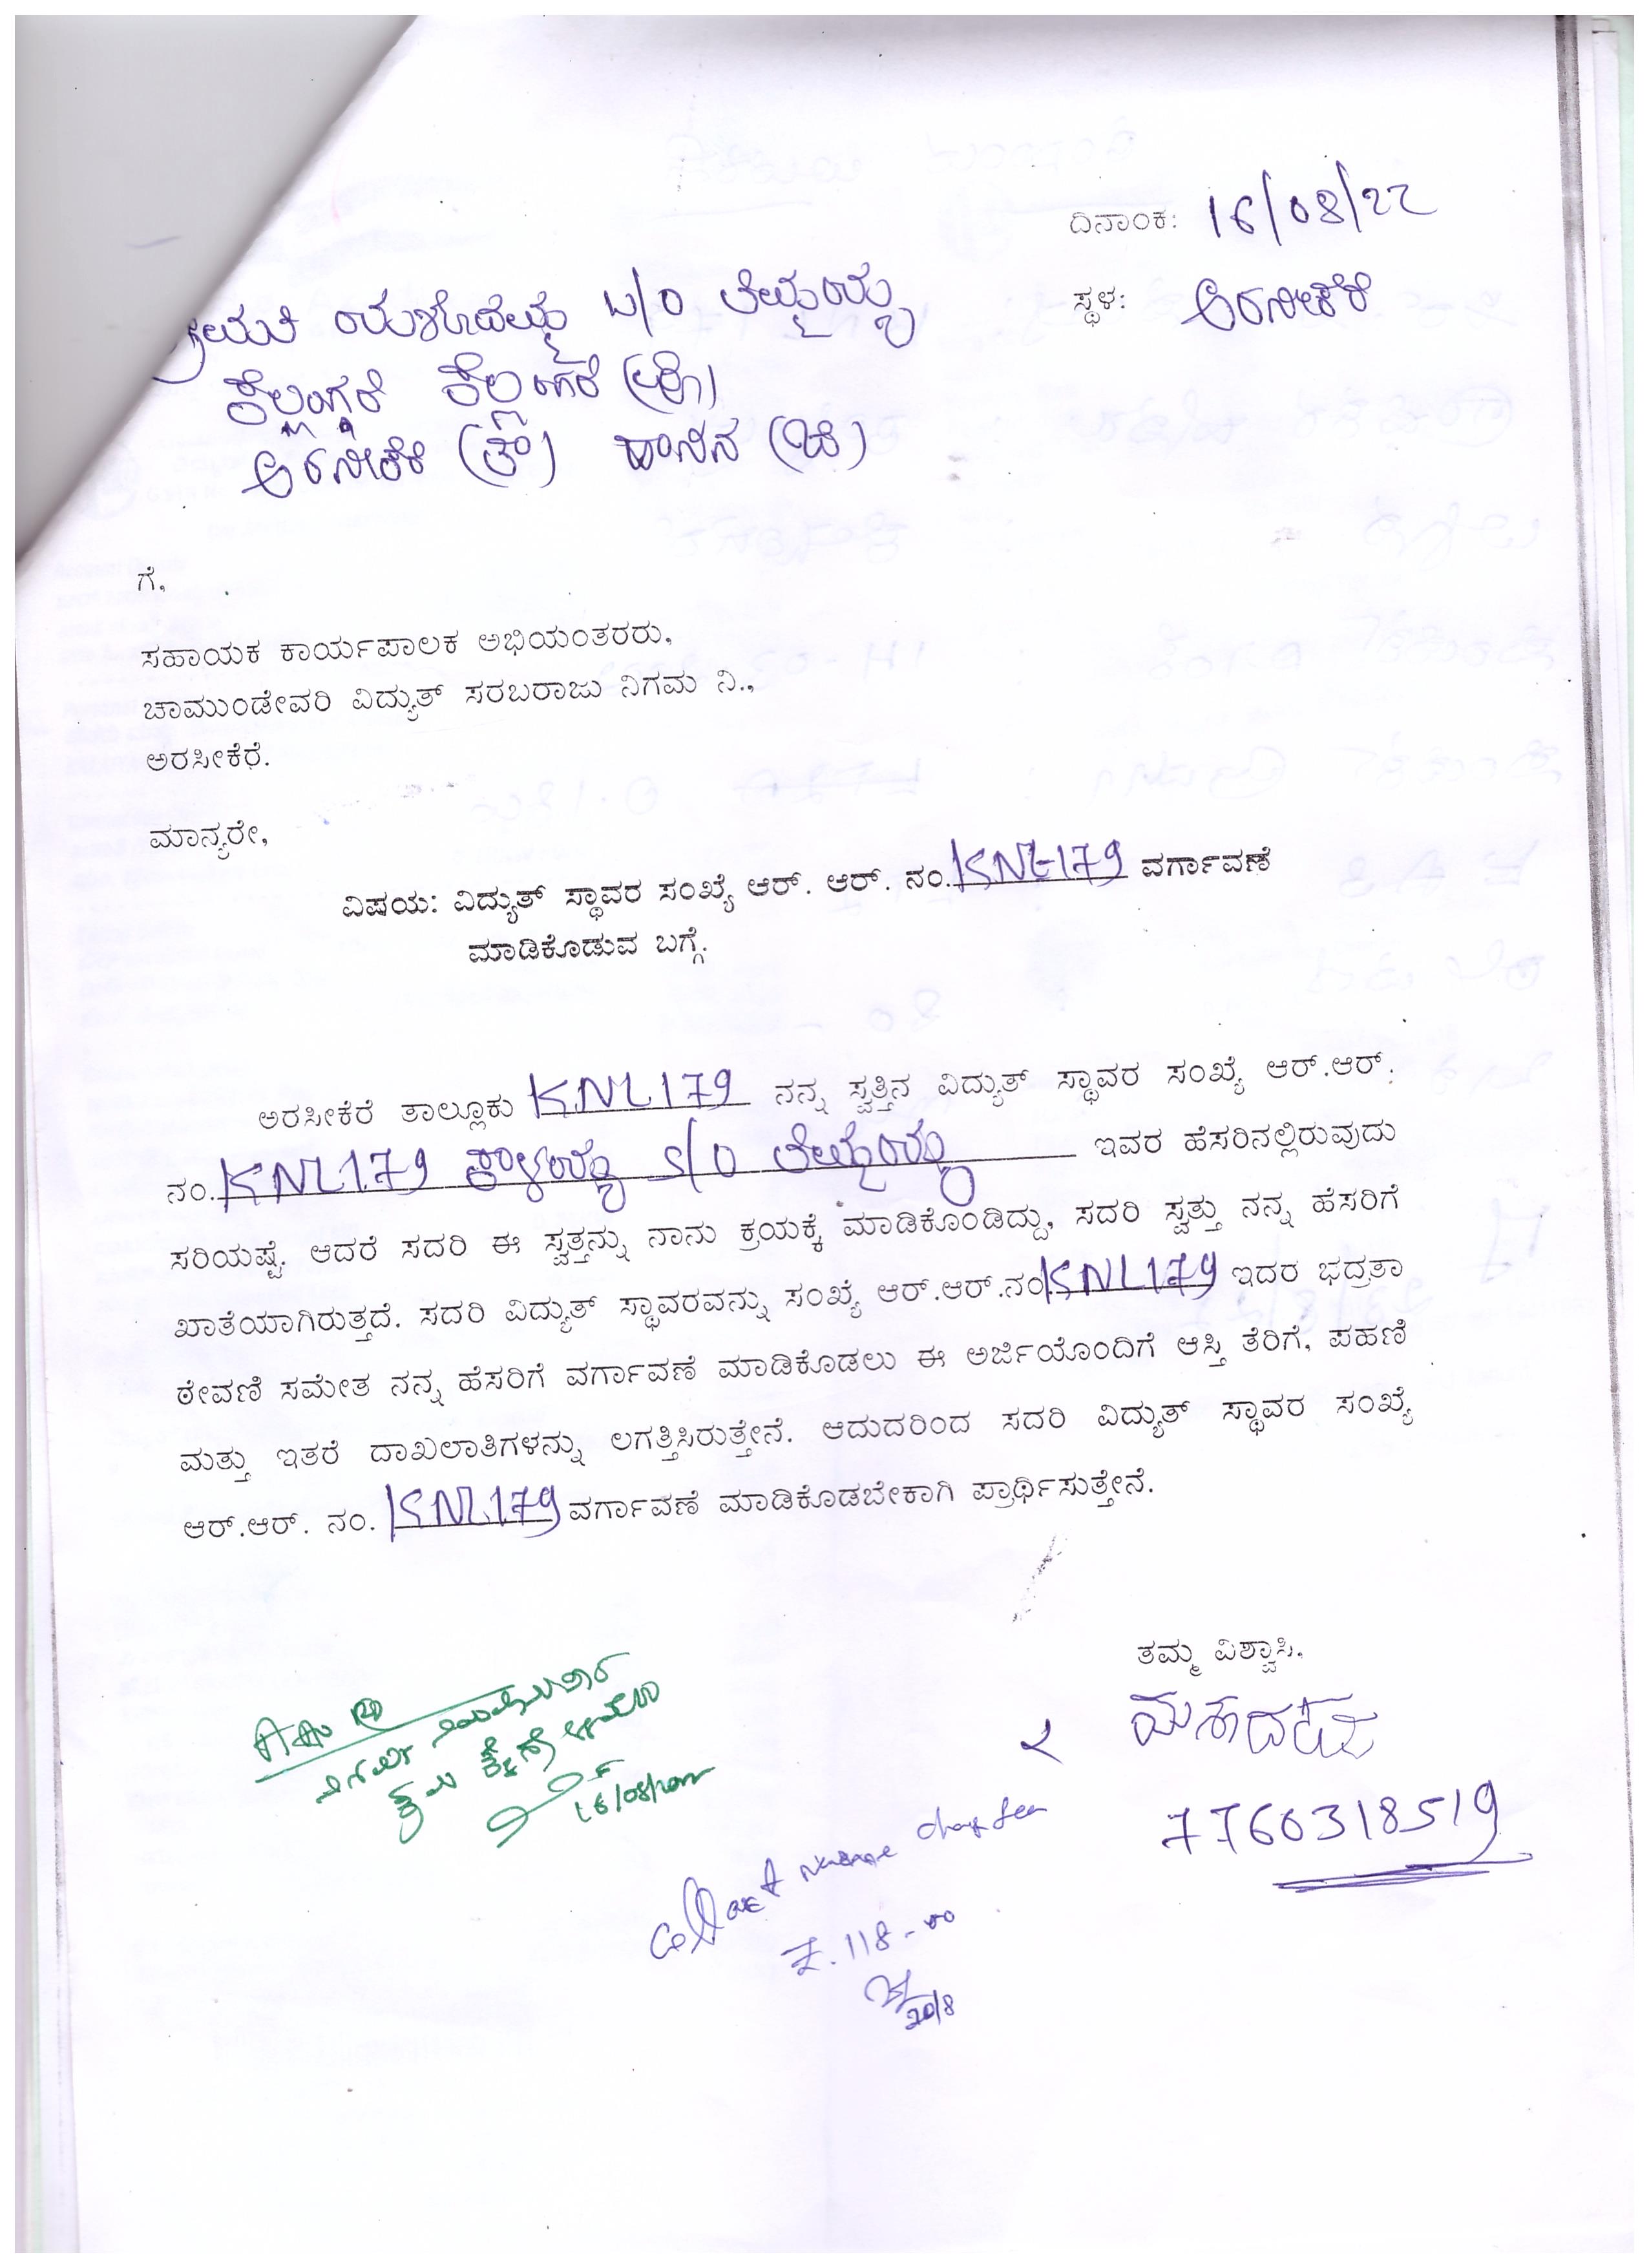 ದಿನಾಂಕ: 16/08/22
ಸ್ಥಳ: ಅರಸೀಕೆರೆ
ಅರಸೀಕೆರೆ (ತಾ) ಹಾಸನ (ಜಿ)
ಗೆ,
ಸಹಾಯಕ ಕಾರ್ಯಪಾಲಕ ಅಭಿಯಂತರರು,
ಚಾಮುಂಡೇವರಿ ವಿದ್ಯುತ್ ಸರಬರಾಜು ನಿಗಮ ನಿ.,
ಅರಸೀಕೆರೆ.
ಮಾನ್ಯರೇ,
ವಿಷಯ: ವಿದ್ಯುತ್ ಸ್ಥಾವರ ಸಂಖ್ಯೆ ಆರ್. ಆರ್. ನಂ. KNL179 ವರ್ಗಾವಣೆ
ಮಾಡಿಕೊಡುವ ಬಗ್ಗೆ.
ಅರಸೀಕೆರೆ ತಾಲ್ಲೂಕು KNL179 ನನ್ನ ಸ್ವತ್ತಿನ ವಿದ್ಯುತ್ ಸ್ಥಾವರ ಸಂಖ್ಯೆ ಆರ್.ಆರ್.
ನಂ. KNL179 S/O ಇವರ ಹೆಸರಿನಲ್ಲಿರುವುದು
ಸರಿಯಷ್ಟೆ. ಆದರೆ ಸದರಿ ಈ ಸ್ವತ್ತನ್ನು ನಾನು ಕ್ರಯಕ್ಕೆ ಮಾಡಿಕೊಂಡಿದ್ದು, ಸದರಿ ಸ್ವತ್ತು ನನ್ನ ಹೆಸರಿಗೆ
ಖಾತೆಯಾಗಿರುತ್ತದೆ. ಸದರಿ ವಿದ್ಯುತ್ ಸ್ಥಾವರವನ್ನು ಸಂಖ್ಯೆ ಆರ್.ಆರ್.ನಂ. KNL179 ಇದರ ಭದ್ರತಾ
ಠೇವಣಿ ಸಮೇತ ನನ್ನ ಹೆಸರಿಗೆ ವರ್ಗಾವಣೆ ಮಾಡಿಕೊಡಲು ಈ ಅರ್ಜಿಯೊಂದಿಗೆ ಆಸ್ತಿ ತೆರಿಗೆ, ಪಹಣಿ
ಮತ್ತು ಇತರೆ ದಾಖಲಾತಿಗಳನ್ನು ಲಗತ್ತಿಸಿರುತ್ತೇನೆ. ಆದುದರಿಂದ ಸದರಿ ವಿದ್ಯುತ್ ಸ್ಥಾವರ ಸಂಖ್ಯೆ
ಆರ್.ಆರ್. ನಂ. KNL179 ವರ್ಗಾವಣೆ ಮಾಡಿಕೊಡಬೇಕಾಗಿ ಪ್ರಾರ್ಥಿಸುತ್ತೇನೆ.
ತಮ್ಮ ವಿಶ್ವಾಸಿ.
7760318519
16/08/2022
Collect name change fee
₹. 118-00
20/8